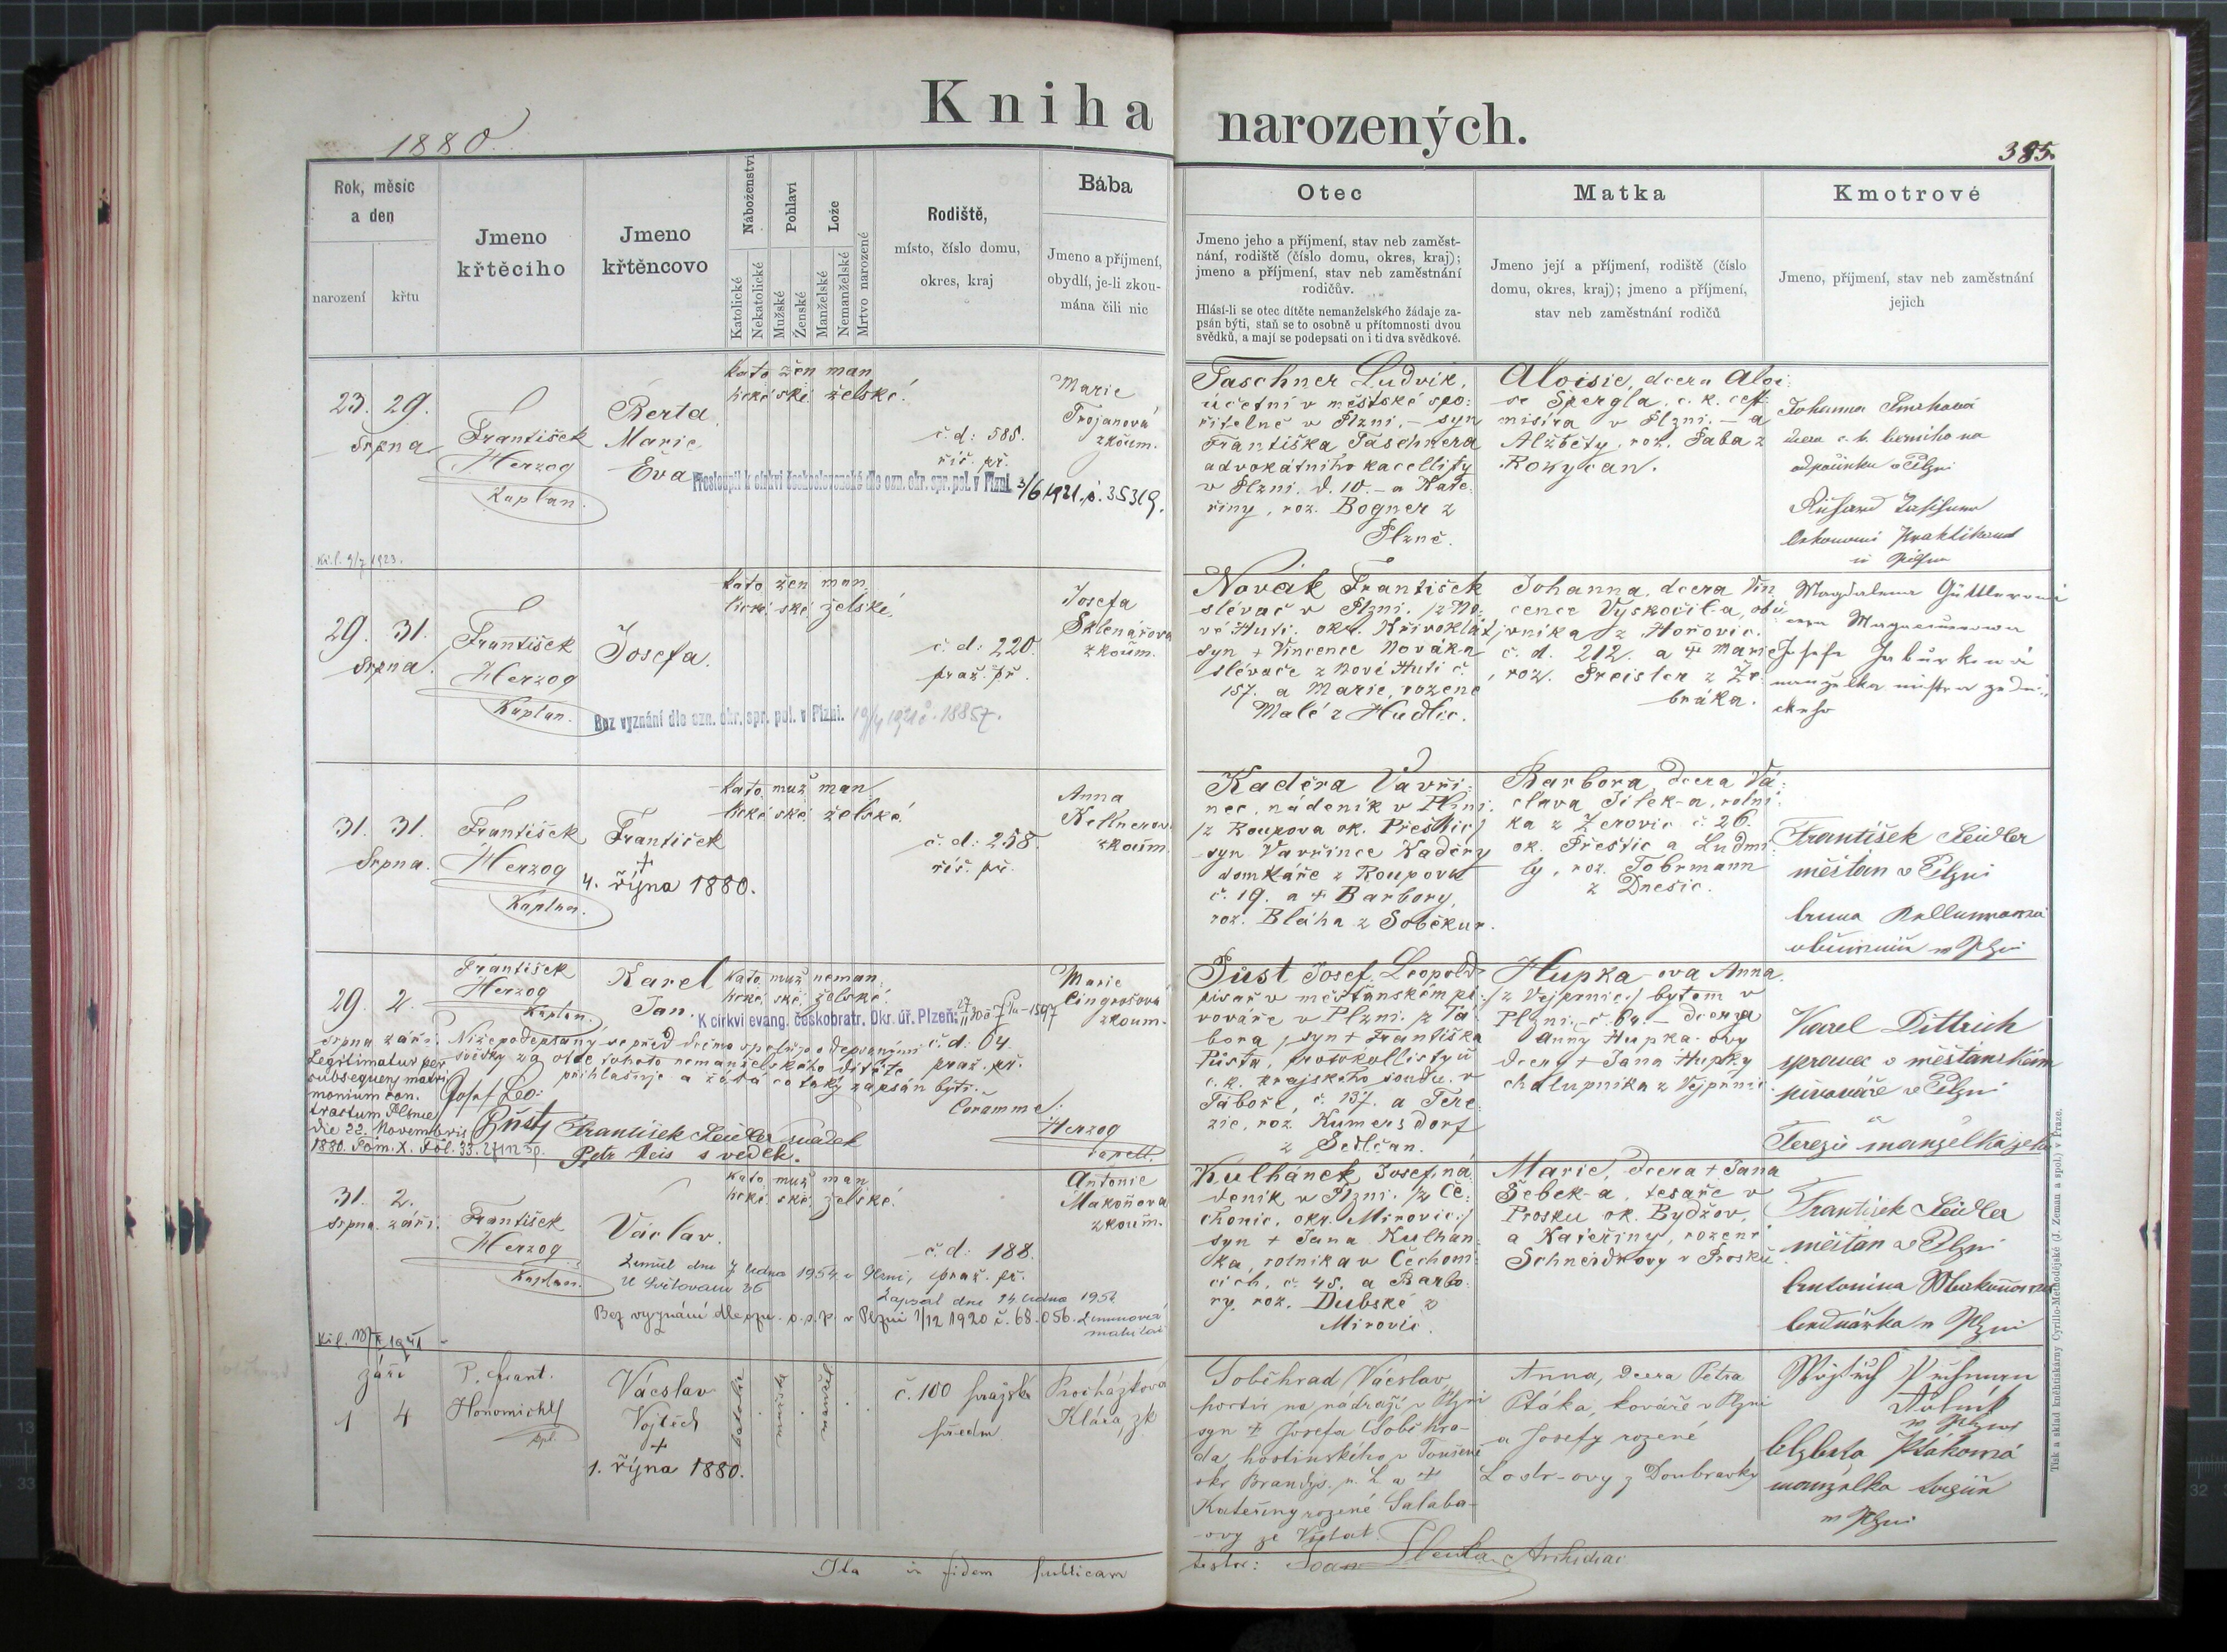 Kniha narozených.
1880.
385.
Rok, měsíc
a den
narození
křtu
Jmeno
křtěcího
Jmeno
křtěncovo
Náboženství
Katolické
Nekatolické
Pohlaví
Mužské
Ženské
Lože
Manželské
Nemanželské
Mrtvo narozené
Rodiště,
místo, číslo domu,
okres, kraj
Bába
Jmeno a příjmení,
obydlí, je-li zkou-
mána čili nic
Otec
Jmeno jeho a příjmení, stav neb zaměst-
nání, rodiště (číslo domu, okres, kraj);
jmeno a příjmení, stav neb zaměstnání
rodičův.
Hlásí-li se otec dítěte nemanželského žádaje za-
psán býti, staň se to osobně u přítomnosti dvou
svědků, a mají se podepsati on i ti dva svědkové.
Matka
Jmeno její a příjmení, rodiště (číslo
domu, okres, kraj); jmeno a příjmení,
stav neb zaměstnání rodičů
Kmotrové
Jmeno, příjmení, stav neb zaměstnání
jejich
23. 29.
Srpna
František
Herzog
Kaplan.
Berta
Marie
Eva
kato žen man
lické ské želské.
č. d: 585.
říš. př.
Marie
Trojanová
zkoum.
Přestoupil k církvi československé dle ozn. okr. spr. pol. v Plzni. 3/6 1921. č. 35319.
Taschner Ludvík,
účetní v městské spo:
řitelně v Plzni, – syn
Františka Taschnera
advokátního kacellisty
v Plzni. d. 10. – a Kate:
řiny, roz. Bogner z
Plzně.
Aloisie, dcera Aloi:
se Špergla, c. k.
misíra v Plzni. – a
Alžběty, roz. Šaba z
Rokycan.
Johanna
dcera c. k.
odpočinku v Plzni
29. 31.
Srpna.
František
Herzog
Kaplan.
Josefa.
kato žen man
lické ské želské.
č. d: 220.
praž. př.
Josefa
Sklenářova
zkoum.
Bez vyznání dle ozn. okr. spr. pol. v Plzni. 19/4 1921 č. 18857.
Novák František
slévač v Plzni. /z No:
vé Huti. okr. Křivoklát/
syn + Vincence Nováka
slévače z Nové Huti č.
157. a Marie, rozené
Malé z Hudlic.
Johanna, dcera Vin
cence Vyskočil-a, obu
vníka z Hořovic.
č. d. 212. a + Marie
, roz. Preisler z Že
bráka.
Magdalena Güttlerová
Josefa Jabůrková
manželka mistra zedni
ckého
31. 31.
Srpna.
František
Herzog
Kaplan.
František
+
4. října 1880.
kato muž man
lické ské želské.
č. d: 258.
říš. př.
Anna
Kellnerov
zkoum.
Kaděra Vavři:
nec, nádeník v Plzni.
/z Roupova ok. Přeštic/
syn Vavřince Kaděry
domkáře z Roupova
č. 19. a + Barbory,
roz. Bláha z Soběkur.
Barbora, dcera Vá:
clava Jílek-a, rolní:
ka z Žerovic č. 26.
ok. Přeštic a Ludmi
ly, roz. Tobrmann
z Dnešic.
František Seidler
měštan v Plzni
Anna Kellnerová
v Plzni
29. 2.
srpna září.
František
Herzog
Kaplan.
Karel
Jan.
kato muž neman
lické ské želské.
č. d: 64.
praž. př.
Marie
Cingrošová
zkoum.
K církvi evang. českobratr. Okr. úř. Plzeň:
Níže podepsaný se před dvěma spolu podepsanými
svědky za otce tohoto nemanželského dítěte
přihlašuje a žádá co taký zapsán býti.
Legitimatur per
subsequens matri
monium con.
tractum Plsnae
die 22. Novembris
1880. Tom. X. Fol. 33.
Josef Leo:
Půst
František Seidler svědek
Petr Leis svědek.
Coram me:
Herzog
capell.
Půst Josef, Leopold
písař v měšťanském pi:
vováře v Plzni. /z Tá:
bora/ syn + Františka
Půsta, protokollisty u
c. k. krajského soudu v
Táboře, č. 137. a Tere
zie, roz. Kumersdorf
z Sedlčan.
Hupka-ova Anna
/z Vejprnic./ bytem v
Plzni. č. 64. – dcera
Anny Hupka-ovy
dcery + Jána Hupky
chalupníka z Vejprnic
Karel Dittrich
správec v měštanském
pivováře v Plzni
a
Terezie manželka jeho
31. 2.
srpna září.
František
Herzog
Kaplan.
Václav.
kato muž man
lické ské želské.
č. d: 188.
praž. př.
Antonie
Makoňova
zkoum.
Zemřel dne 7. ledna 1954 v Plzni,
U Světovaru 26
Zapsal dne 14. ledna 1954
Bez vyznání dle ozn. o. s. p. v Plzni 1/12 1920 č. 68.056.
Kulhánek Josef, ná
deník v Plzni. /z Če:
chonic, okr. Mirovic:/
syn + Jana Kulhán:
ka, rolníka v Čechoni:
cích, č. 45. a Barbo:
ry, roz. Dubské z
Mirovic.
Marie, dcera + Jana
Šebek-a, tesaře v
Prosku ok. Bydžov,
a Kateřiny, rozené
Schneidrovy v Prosku.
František Seidler
měštan v Plzni
Antonina Makoňova
v Plzni
září
1 4
P. Frant.
Honomichl
kpl.
Václav
Vojtěch
+
1. října 1880.
katolic
mužské
manžel
č. 100 pražské
předm.
Procházková
Klára, zk
Soběhrad Václav
portýr na nádraží v Plzni
syn + Josefa Soběhra-
da, hostinského v Toušeni
okr Brandýs n. L a +
Kateřiny rozené Salaba-
ovy ze Všetat
Anna, dcera Petra
Ptáka, kováře v Plzni
a Josefy rozené
Lodr-ovy z Doubravky
Vojtěch
v Plzni
Alžběta Ptáková
manželka
v Plzni
Ita in fidem publicam
testor: Joan Archidiac
Tisk a sklad kněhtiskárny Cyrillo-Methodějské (J. Zeman a spol.) v Praze.